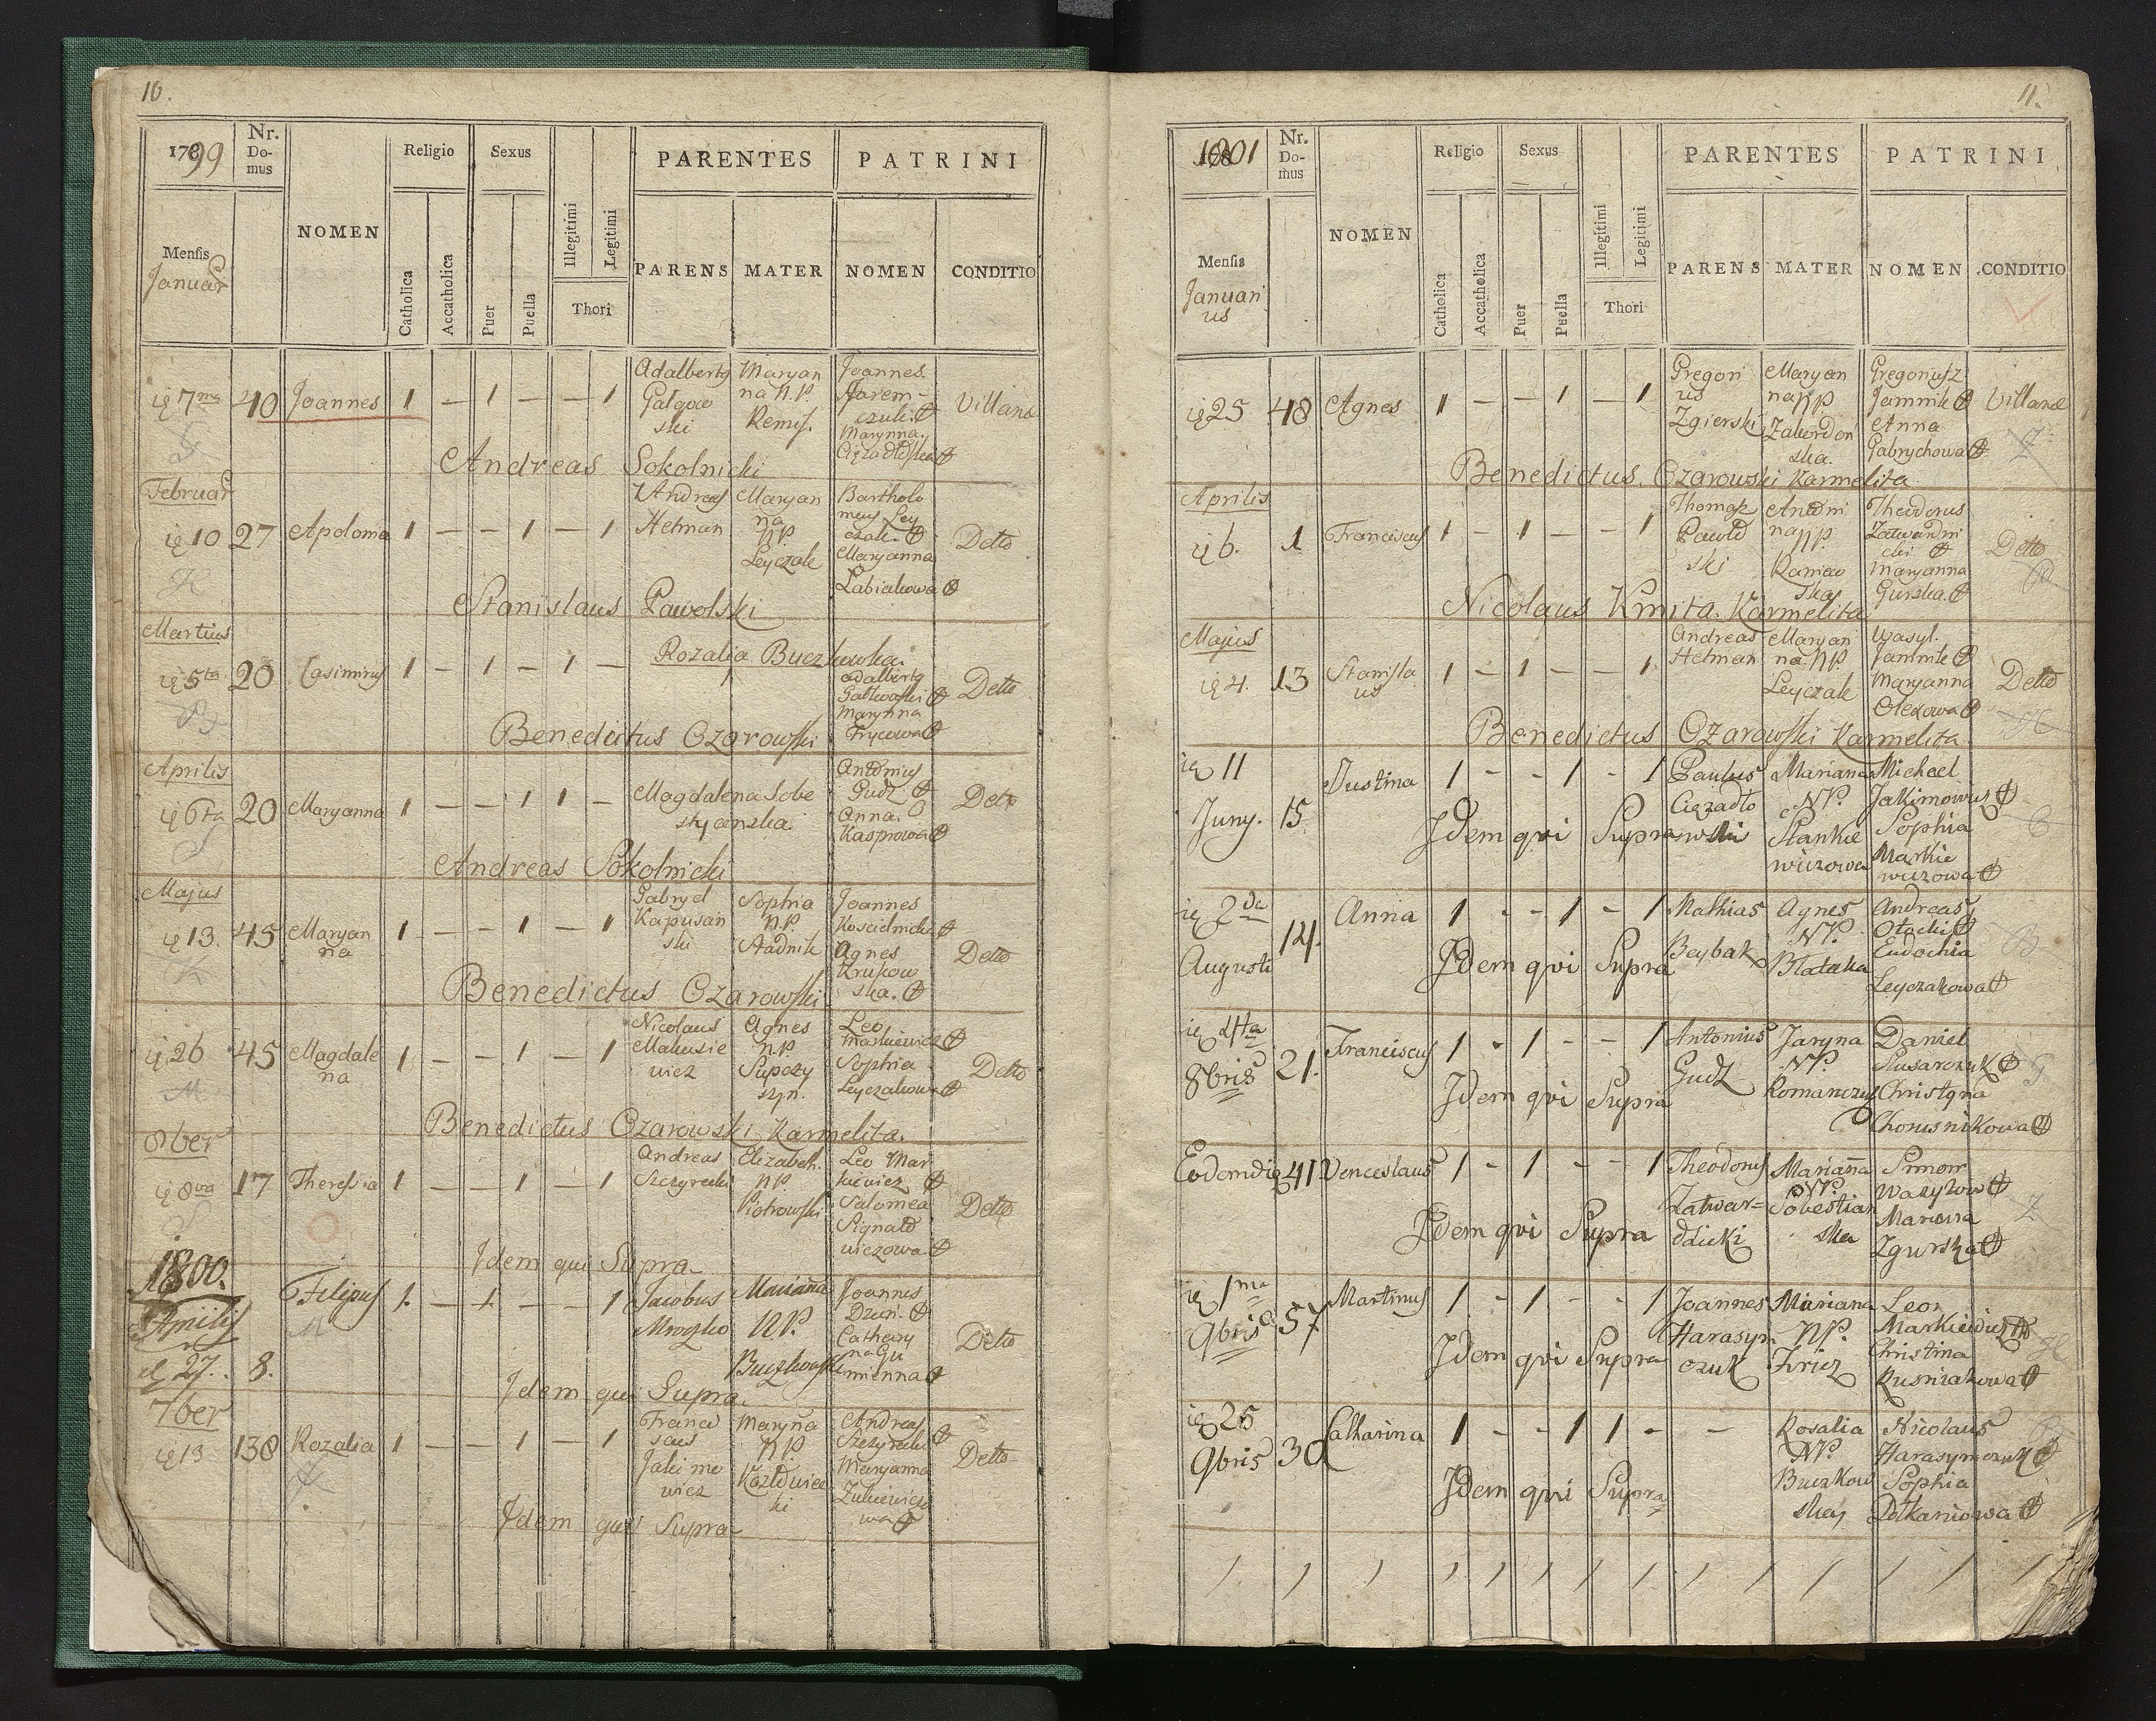 10.
1799
Nr. Do-mus
NOMEN
Religio
Sexus
PARENTES
PATRINI
Mensis
Januar
Catholica
Accatholica
Puer
Puella
Illegitimi
Legitimi
Thori
PARENS
MATER
NOMEN
CONDITIO
7ma 40 Joannes 1 — 1 — — 1
Galgow
ski
Maryan
na N.P.
Joannes
Villanæ
Andreas Sokolnicki
Februar
10 27 Apolonia 1 — — 1 — 1
Andreas
Hetman
Maryan
na
NP.
Leyczak
Bartholo
meus Ley
czak.
Maryanna
Labiakowa
Detto
Stanislaus Pawolski
Martius
5ta 20 Casimirus 1 — 1 — 1 —
Rozalia Buczkowska.
Adalbertg
Marynna
Frycowa
Detto
Benedictus Czarowski
Aprilis
6ta 20 Maryanna 1 — — 1 1 —
Magdalena Sobe
Antonius
Gudz
Anna
Kasprowa
Detto
Andreas Sokolnicki
Majus
13. 45 Maryan
na
1 — — 1 — 1
Gabryel
Kapusan
ski
Sophia
NP.
Stadnik
Joannes
Koscielnicki
Agnes
Krukow
ska.
Detto
Benedictus Czarowski
26 45 Magdale
na
1 — — 1 — 1
Nicolaus
Makusie
wicz
Agnes
NP.
Supczy
Leo
Markiewicz
Sophia
Leyczakowa
Detto
Benedictus Czarowski Karmelita.
8ber
8va 17 Theresia 1 — — 1 — 1
Andreas
Szczyrecki
Elizabeh.
NP.
Piotrowski
Leo Mar
kiewicz
Salomea
Signato
wiczowa
Detto
Idem qui Supra
1800.
Aprilis
27. 8.
Filipus 1. — 1 — — 1
Jacobus
Mroszko
Marianna
NP.
Buczkowski
Joannes
Dzun.
Cathary
na Gu
mienna
Detto
Idem qui Supra.
7ber
13 138 Rozalia 1 — — 1 — 1
Francis
cus
Jakimo
wicz
Maryna
NP.
Kozlowiec
ki
Andreas
Szczyrecki
Maryanna
Zukiewiczo
wa
Detto
Idem qui Supra
11.
1801
Nr. Do-mus
NOMEN
Religio
Sexus
PARENTES
PATRINI
Mensis
Januari
us
Catholica
Accatholica
Puer
Puella
Illegitimi
Legitimi
Thori
PARENS
MATER
NOMEN
CONDITIO
25 48 Agnes 1 — — 1 — 1
Gregori
us
Zgierski
Maryan
na NP
Zaberdon
ska.
Gregoriusz
Jamnik
Anna
Gabrychowa
Villanæ
Benedictus Czarowski Karmelita
Aprilis
6. 1 Franciscus 1 — 1 — — 1
Thomasz
Pawol
ski
Antoni
na NP.
Raniew
ska
Theodorus
Zatwardni
cki
Maryanna
Gurska.
Detto
Nicolaus Kmita. Karmelita
Majus
4. 13 Stanisla
us
1 — 1 — — 1
Andreas
Hetman
Maryan
na NP.
Leyczak
Wasyl.
Jamnik
Maryanna
Olexowa
Detto
Benedictus Czarowski Karmelita
11
Juny. 15 Justina 1 - - 1 - 1
Paulus
Ciązadło
wski
Mariana
NP.
Stankie
wiczowa
Michael
Jakimowus
Sophia
Markie
wiczowa
Idem qvi Supra
2da
Augusti 14. Anna 1 - - 1 - 1
Mathias
Beybak
Agnes
NP.
Blataka
Andreas
Otocki
Eudochia
Leyczakowa
Idem qvi Supra
4ta
8bris 21. Franciscus 1 - 1 - - 1
Antonius
Gudz
Jaryna
NP.
Romanczuk
Daniel
Slusarczuk
Christyna
Chorusnikowa
Idem qvi Supra
Eodemdie 41 Venceslaus 1 - 1 - - 1
Theodorus
Zatwar=
dnicki
Marianna
NP.
Sobestian
ska
Simon
Wasylow
Marianna
Zgurska
Idem qvi Supra
1ma
9bris 57 Martinus 1 - 1 - - 1
Joannes
Harasym
czuk
Mariana
NP.
Firicz
Leon
Christina
Kusniakowa
Idem qvi Supra
25
9bris 30 Catharina 1 - - 1 1 - -
Rosalia
NP.
Buczkow
ska
Nicolaus
Harasymczuk
Sophia
Dolkaniowa
Idem qvi Supra